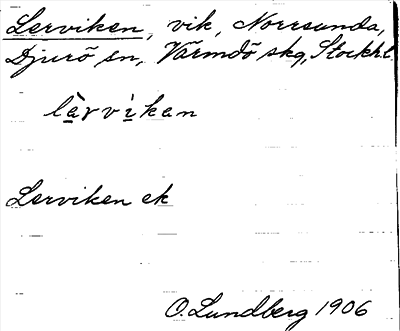 Lerviken, vik, Norrsunda,
Djurö sn, Värmdö skg, Stockh.l.
lä̀rvìkan
Lerviken ek
O. Lundberg 1906